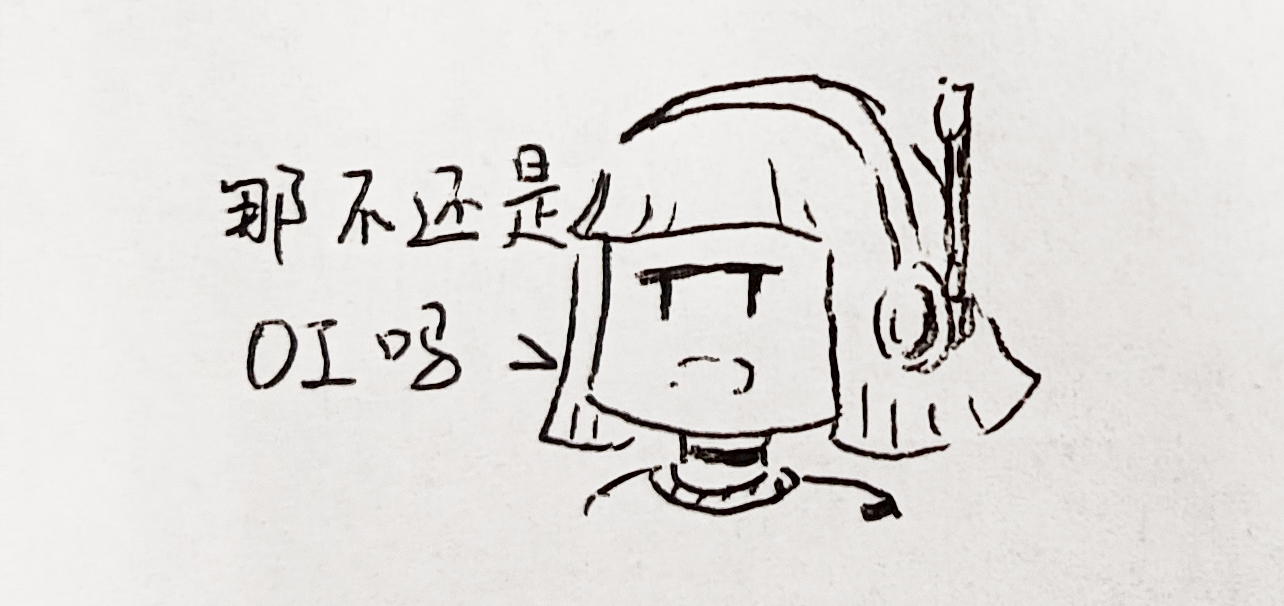 那不还是
OI吗